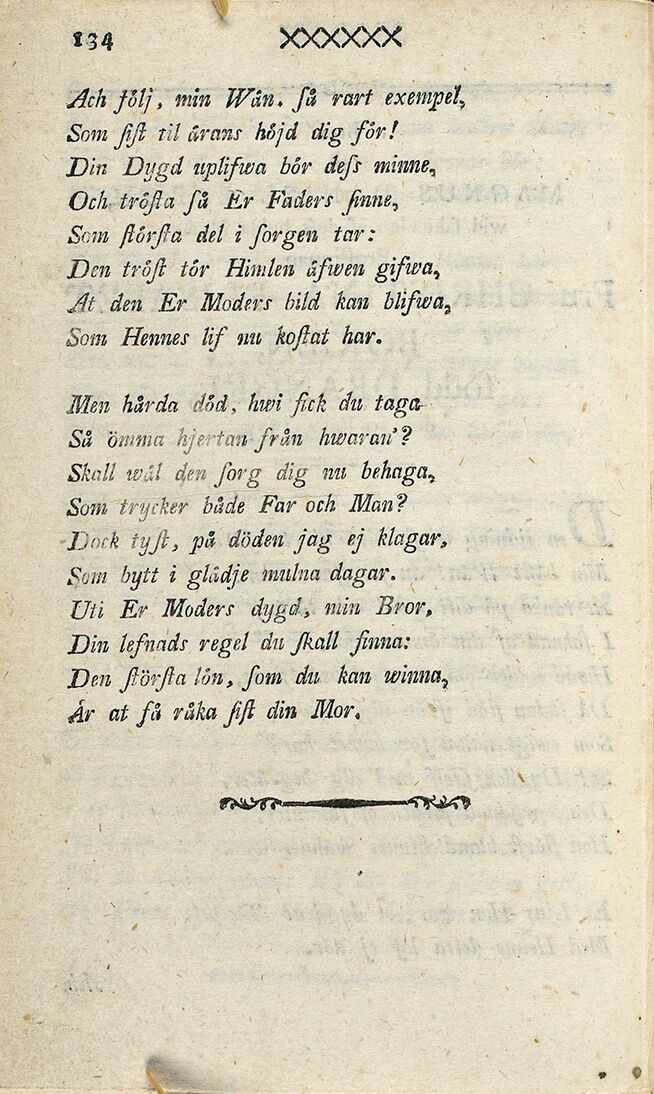 134 XXXXXX
Ach fôlj, min Wån. ſå rart exempel,
Som ſiſt til årans hôjd dig fôr!
Din Dygd uplifwa bôr deſs minne,
Och trôſta ſå Er Faders ſinne,
Som ſtôrſta del i ſorgen tar:
Den trôſt tôr Himlen åfwen gifwa,
At den Er Moders bild kan blifwa,
Som Hennes lif nu koſtat har.
Men hårda död, hwi fick du taga
Så ömma hjertan från hwaran'?
Skall wål den ſorg dig nu behaga,
Som trycker både Far och Man?
Dock tyſt, på döden jag ej klagar,
Som bytt i glådje mulna dagar.
Uti Er Moders dygd, min Bror,
Din lefnads regel du ſkall finna:
Den ſtörſta lôn, ſom du kan winna,
Är at få råka ſiſt din Mor.